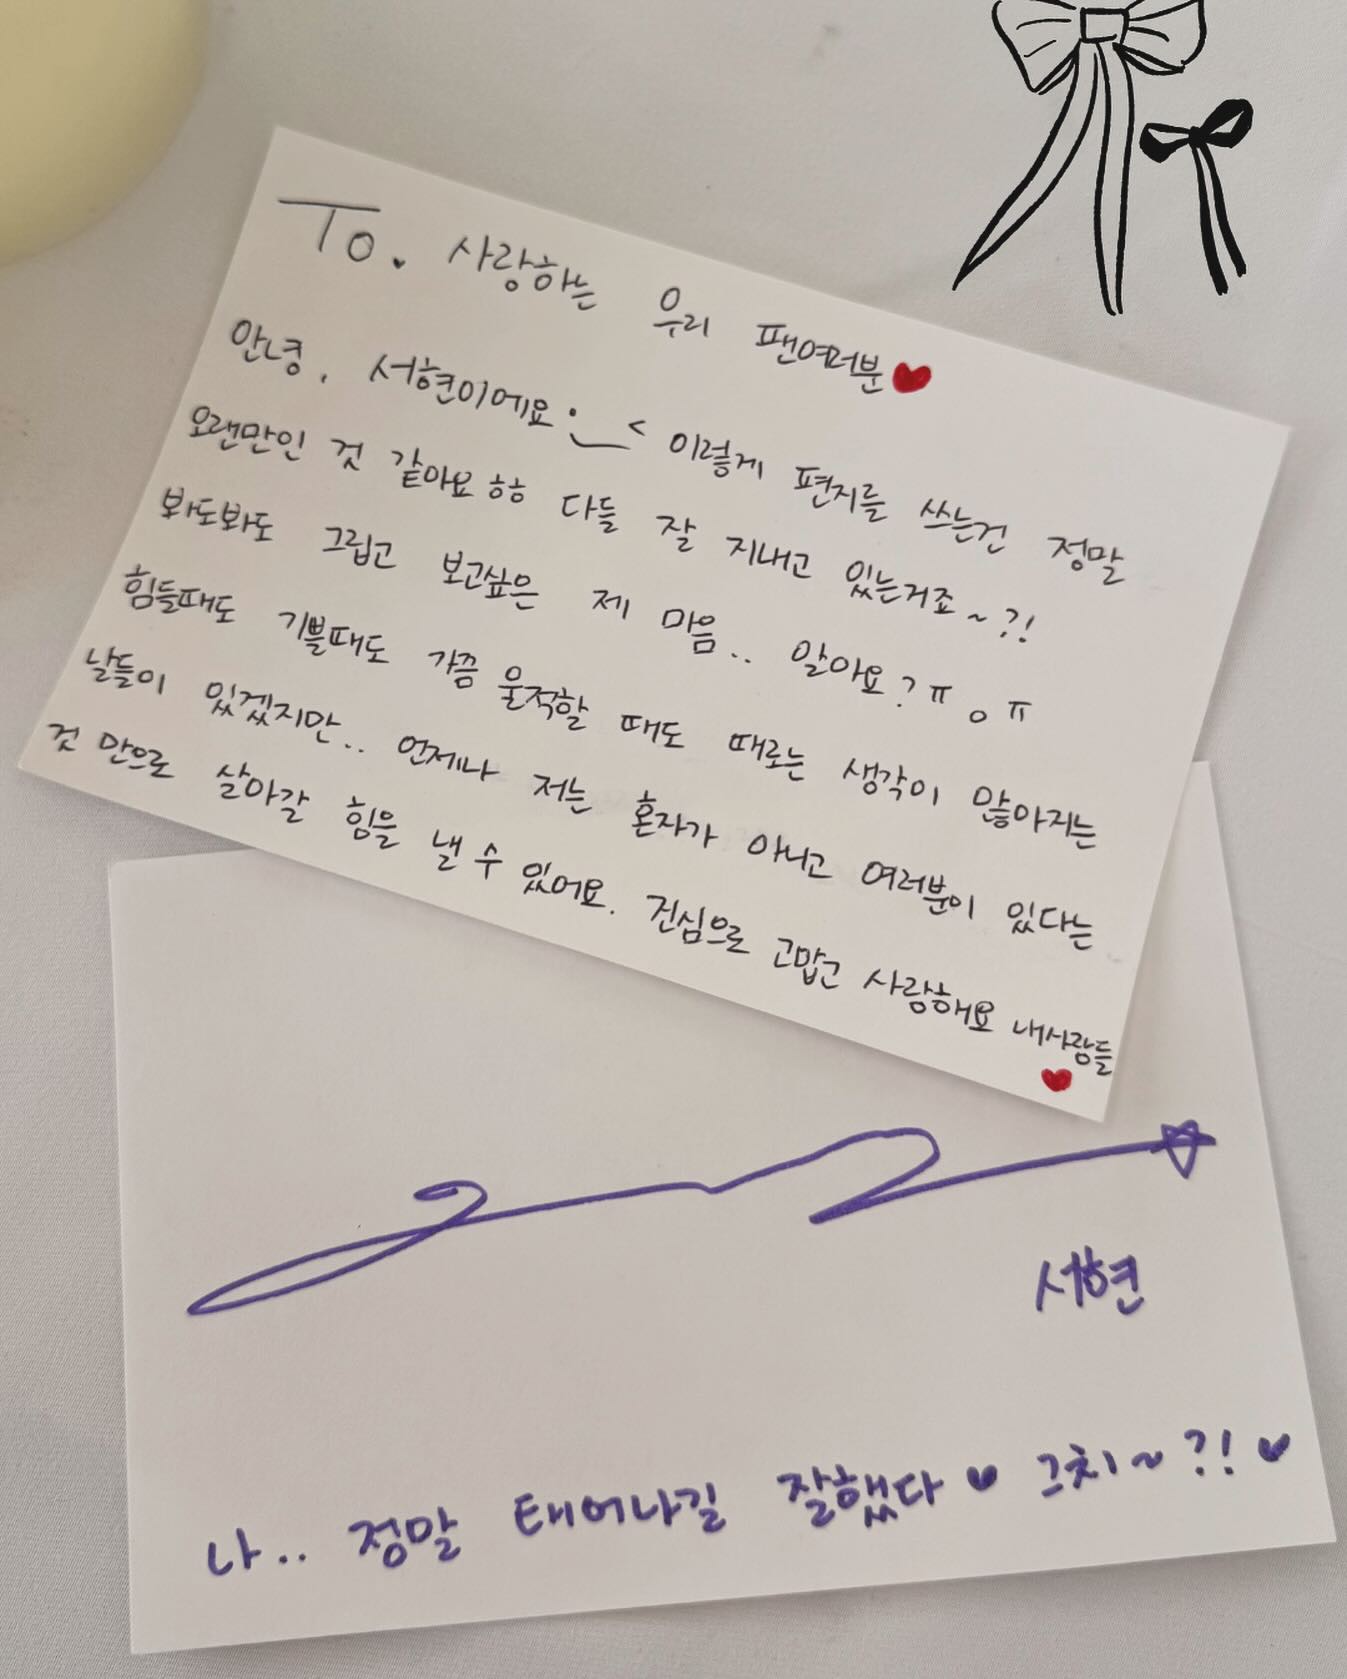 To. 사랑하는 우리 팬여러분♥
안녕, 서현이에요 :_< 이렇게 편지를 쓰는건 정말
오랜만인 것 같아요 ㅎㅎ 다들 잘 지내고 있는거죠~?!
봐도봐도 그립고 보고싶은 제 마음.. 알아요? ㅠ。ㅠ
힘들때도 기쁠때도 가끔 울적할 때도 때로는 생각이 많아지는
날들이 있겠지만.. 언제나 저는 혼자가 아니고 여러분이 있다는
것 만으로 살아갈 힘을 낼 수 있어요. 진심으로 고맙고 사랑해요 내사람들
♥
서현
나.. 정말 태어나길 잘했다♥ 그치~?!♥